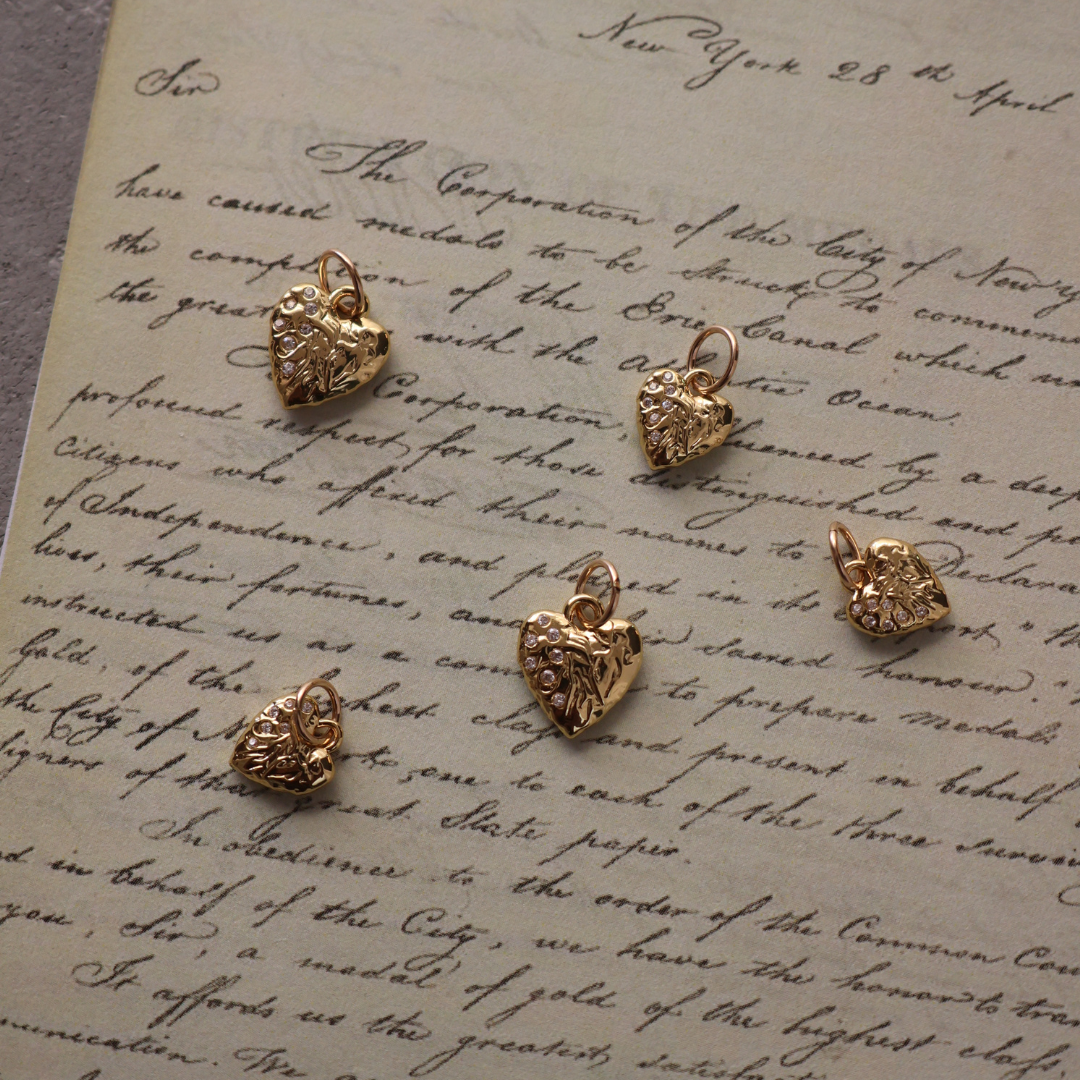 New York 28th April
Sir
The Corporation of the City of New Y
have caused medals to be struck to commem
the completion of the Erie Canal which un
the great with the Atlantic Ocean.
Corporation, influenced by a deep
profound respect for those distinguished and pa
Citizens who affixed their names to Declara
of Independence, and pledged in its "th
lives, their fortunes, and their sacred honour",
instructed us as a com to prepare medals
Gold, of the highest class and present in behalf
the City of New York, one to each of the three survivi
signers of that great State paper.
In obedience to the order of the Common Cou
d in behalf of the City, we have the honor to tran
you, Sir, a medal of gold of the highest class.
It affords us the greatest satisfact
munication. We